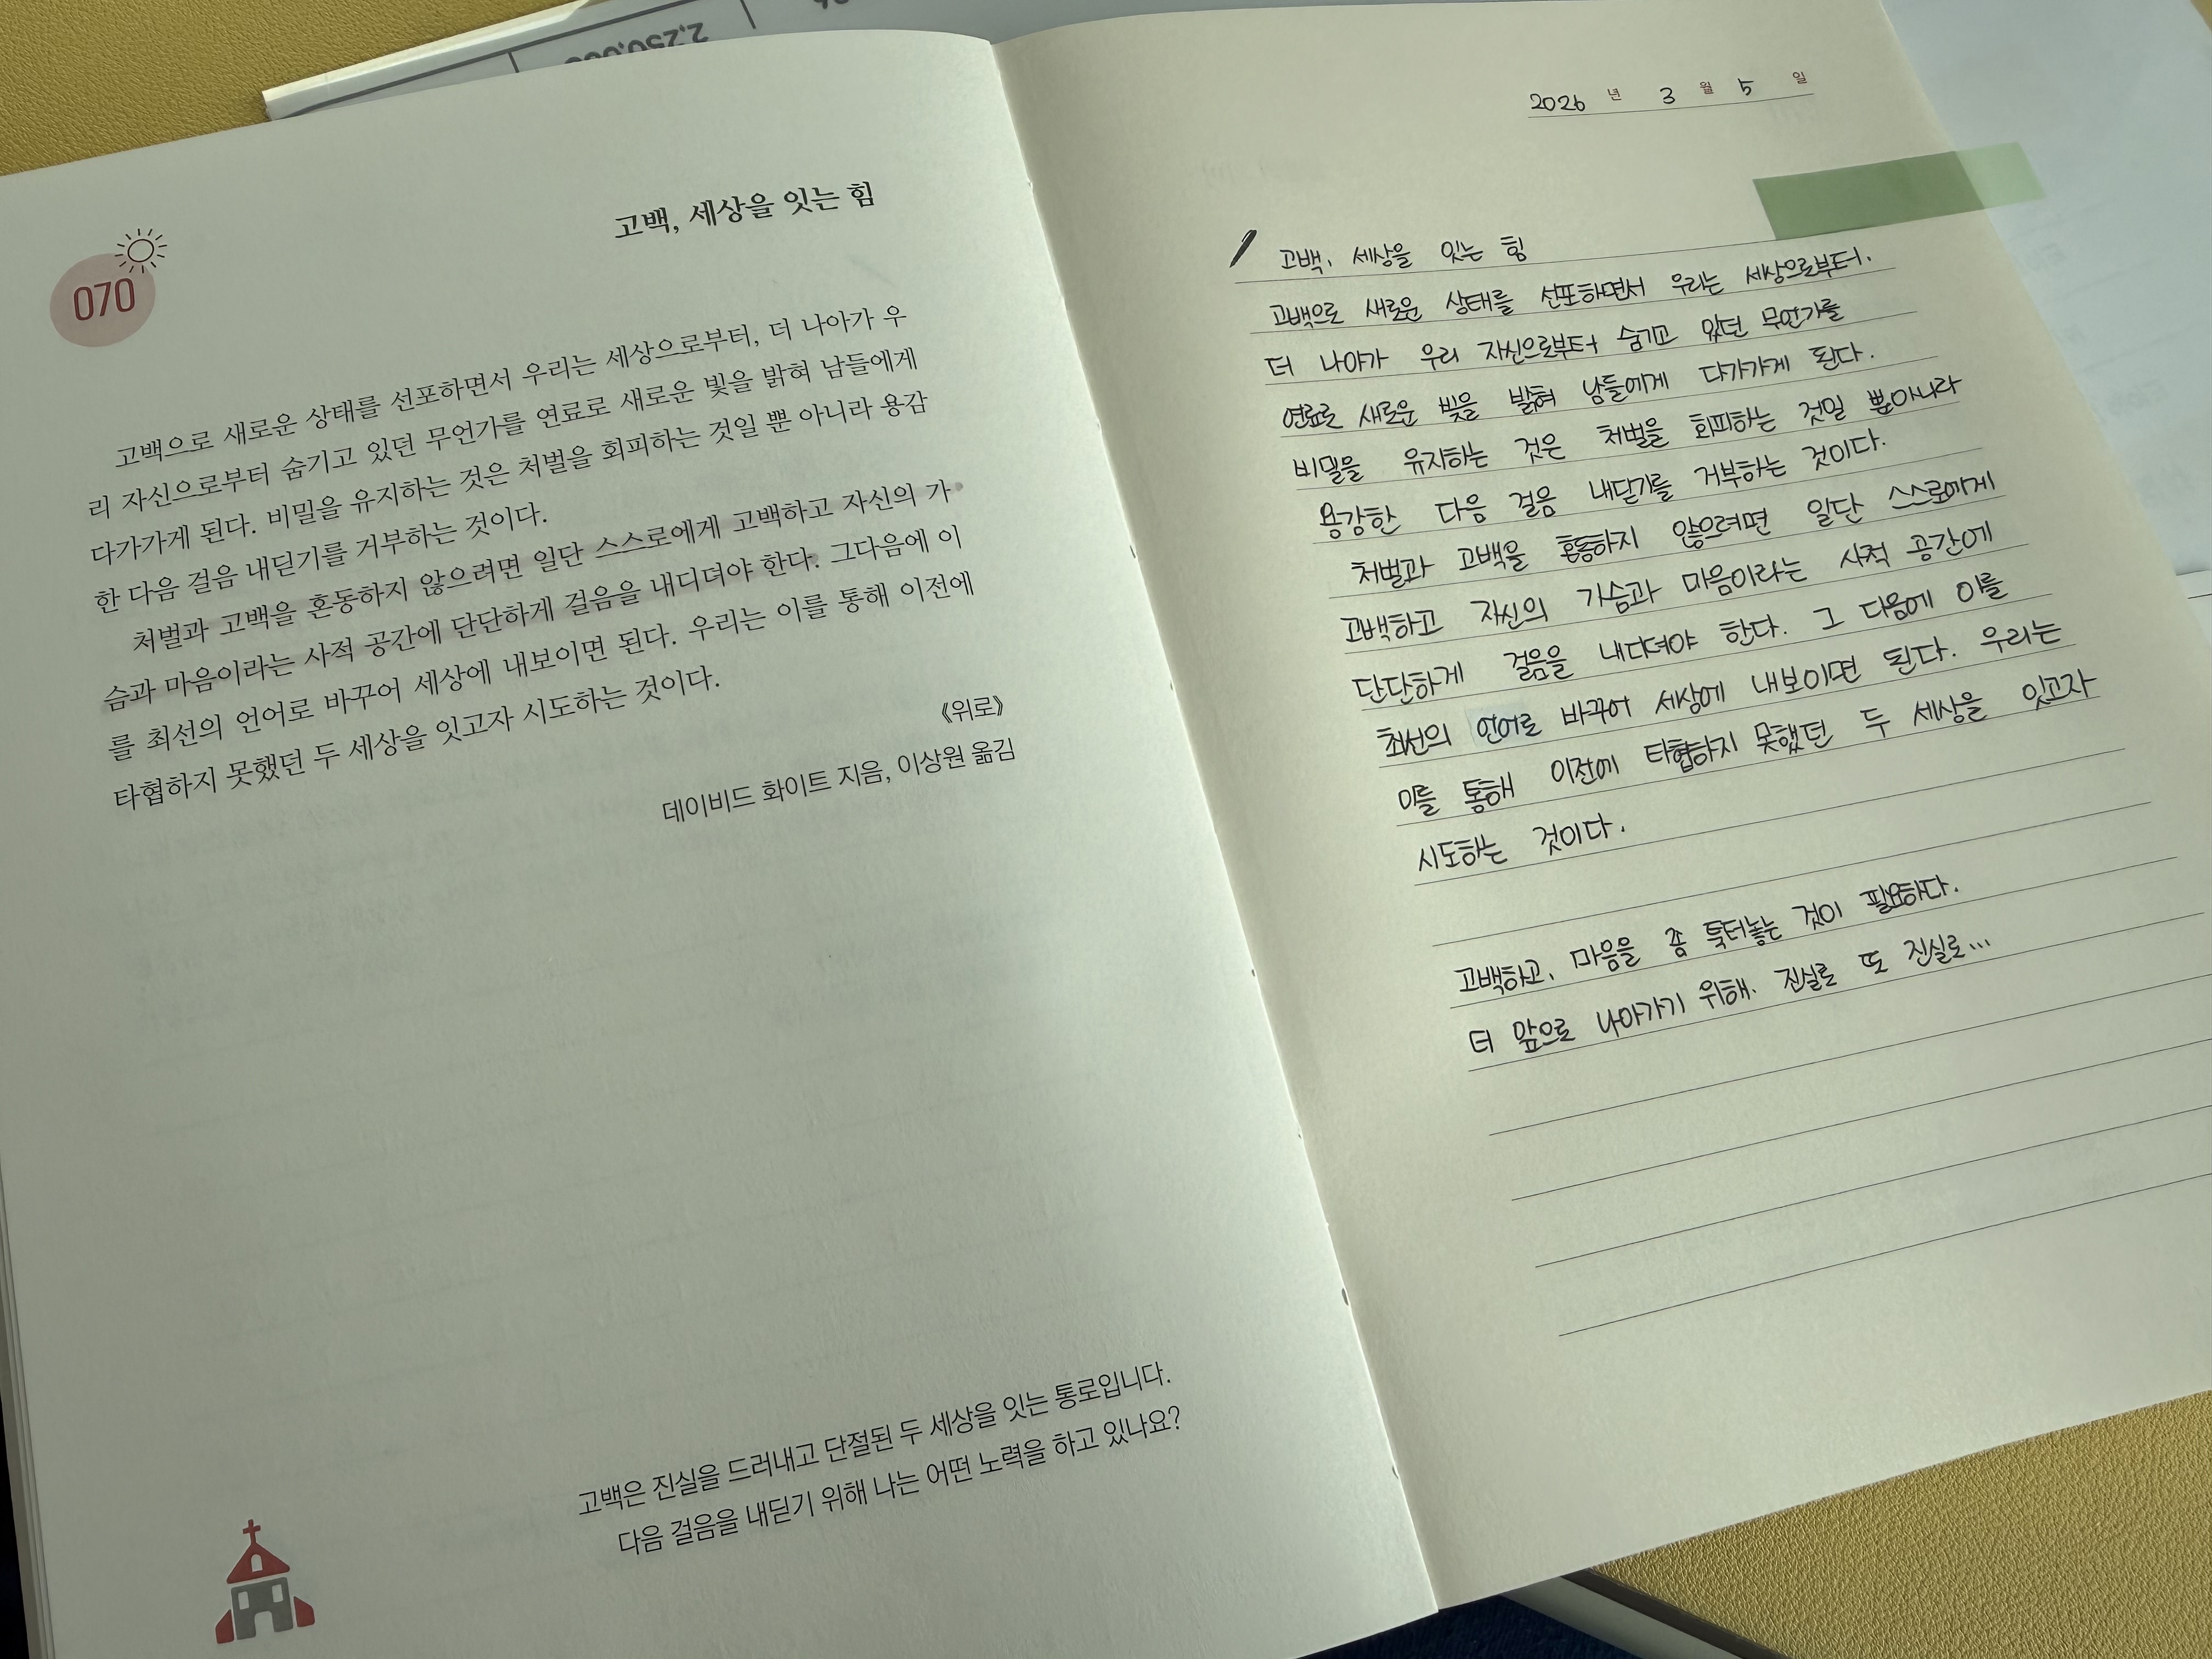 2,250,000
고백, 세상을 잇는 힘
070
고백으로 새로운 상태를 선포하면서 우리는 세상으로부터, 더 나아가 우
리 자신으로부터 숨기고 있던 무언가를 연료로 새로운 빛을 밝혀 남들에게
다가가게 된다. 비밀을 유지하는 것은 처벌을 회피하는 것일 뿐 아니라 용감
한 다음 걸음 내딛기를 거부하는 것이다.
처벌과 고백을 혼동하지 않으려면 일단 스스로에게 고백하고 자신의 가
슴과 마음이라는 사적 공간에 단단하게 걸음을 내디뎌야 한다. 그다음에 이
를 최선의 언어로 바꾸어 세상에 내보이면 된다. 우리는 이를 통해 이전에
타협하지 못했던 두 세상을 잇고자 시도하는 것이다.
《위로》
데이비드 화이트 지음, 이상원 옮김
고백은 진실을 드러내고 단절된 두 세상을 잇는 통로입니다.
다음 걸음을 내딛기 위해 나는 어떤 노력을 하고 있나요?
2026 년 3 월 5 일
고백, 세상을 잇는 힘
고백으로 새로운 상태를 선포하면서 우리는 세상으로부터,
더 나아가 우리 자신으로부터 숨기고 있던 무언가를
연료로 새로운 빛을 밝혀 남들에게 다가가게 된다.
비밀을 유지하는 것은 처벌을 회피하는 것일 뿐아니라
용감한 다음 걸음 내딛기를 거부하는 것이다.
처벌과 고백을 혼동하지 않으려면 일단 스스로에게
고백하고 자신의 가슴과 마음이라는 사적 공간에
단단하게 걸음을 내디뎌야 한다. 그 다음에 이를
최선의 언어로 바꾸어 세상에 내보이면 된다. 우리는
이를 통해 이전에 타협하지 못했던 두 세상을 잇고자
시도하는 것이다.
고백하고, 마음을 좀 툭터놓는 것이 필요하다.
더 앞으로 나아가기 위해. 진실로 또 진실로...